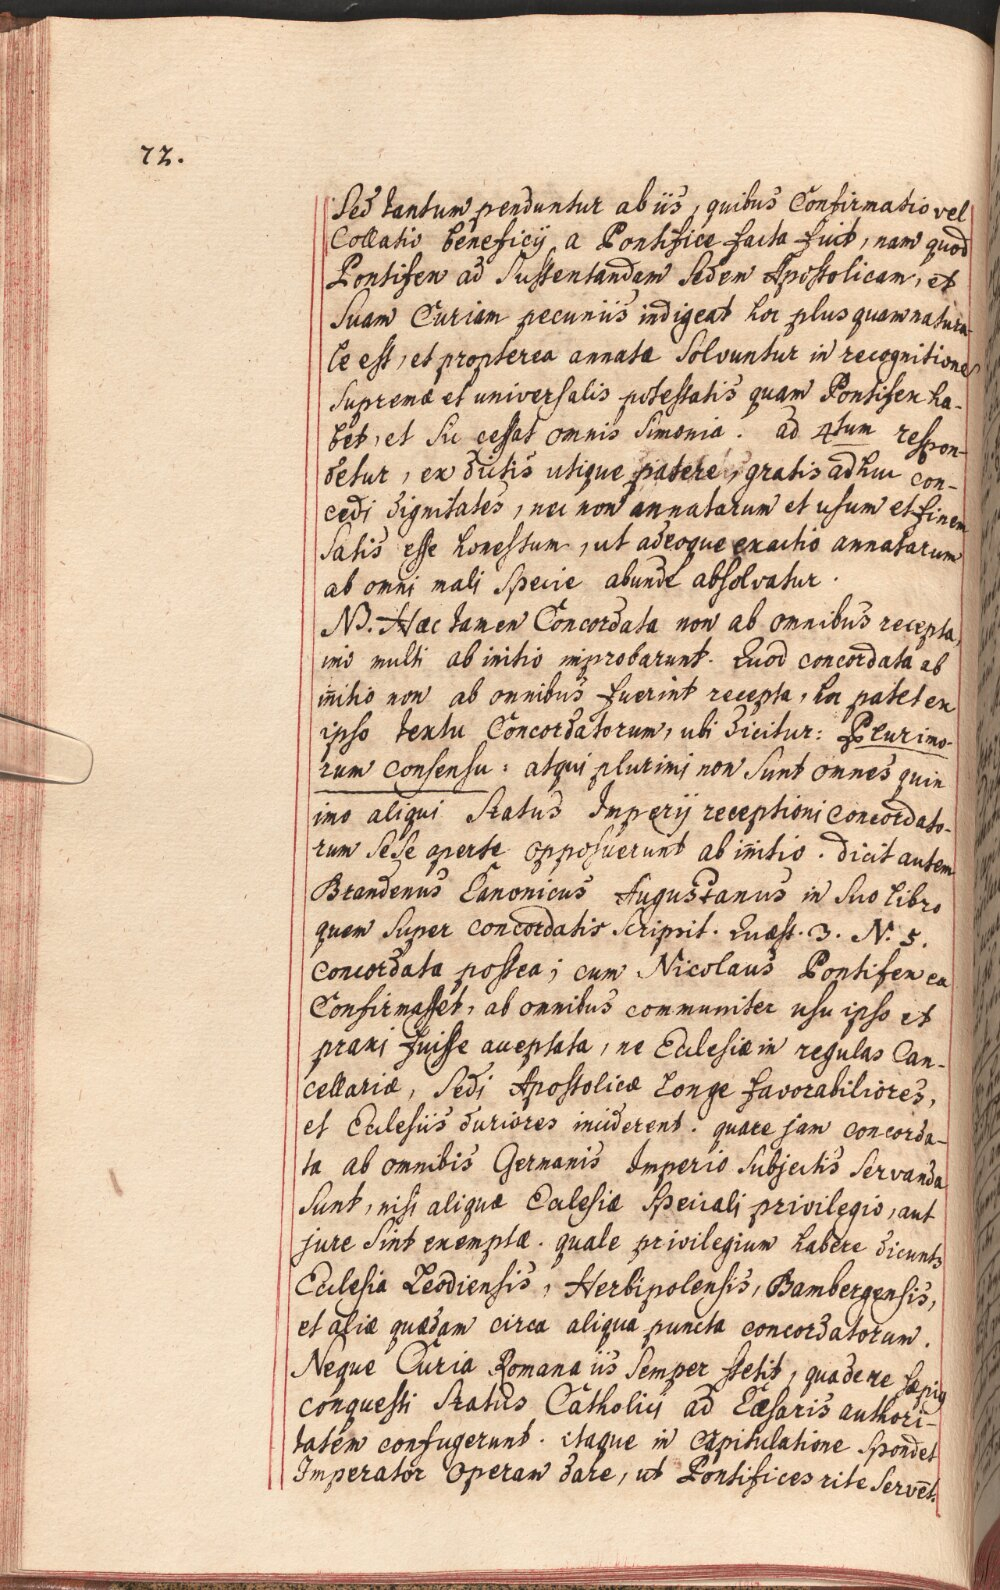 72.
Sed tantum penduntur ab iis, quibus Confirmatio vel
Collatio beneficij a Pontifice facta fuit, nam quod
Pontifex ad Sustentandam Sedem Apostolicam, et
Suam Curiam pecuniis indigeat hoc plus quam natura-
le est, et propterea annatæ Solvuntur in recognitionem
Supremæ et universalis potestatis quam Pontifex ha-
bet, et Sic cessat omnis Simonia. ad 4tum respon-
detur, ex dictis utique patere, gratis adhuc con-
cedi dignitates, nec non annatarum et usum et finem
Satis esse honestum, ut adeoque exactio annatarum
ab omni mali Specie abunde absolvatur.
NB. Hæc tamen Concordata non ab omnibus recepta,
imo multi ab initio improbarunt. Quod concordata ab
initio non ab omnibus fuerint recepta, hoc patet ex
ipso textu Concordatorum, ubi dicitur: Plurimo-
rum consensu: atqui plurimi non Sunt omnes quin
imo aliqui Status Imperij receptioni Concordato-
rum Sese aperte opposuerunt ab initio. dicit autem
Brandenus Canonicus Augustanus in Suo libro
quem Super concordatis Scripsit. Quæst. 3. N. 5.
concordata postea; cum Nicolaus Pontifex ea
Confirmasset, ab omnibus communiter usu ipso et
praxi fuisse acceptata, ne Ecclesiæ in regulas Can-
cellariæ, Sedi Apostolicæ longe favorabiliores,
et Ecclesiis duriores inciderent. quare jam concorda-
ta ab omnibis Germanis Imperio Subjectis Servanda
Sunt, nisi aliquæ Ecclesiæ Speciali privilegio, aut
jure Sint exemptæ. quale privilegium habere dicunts
Ecclesia Leodiensis, Herbipolensis, Bambergensis,
et aliæ quædam circa aliqua puncta concordatorum.
Neque Curia Romana iis Semper stetit, qua de re sæpiq
conquesti Status Catholici ad Cæsaris authori-
tatem confugerunt. itaque in Capitulatione Spondet
Imperator Operam dare, ut Pontifices rite Servēt.